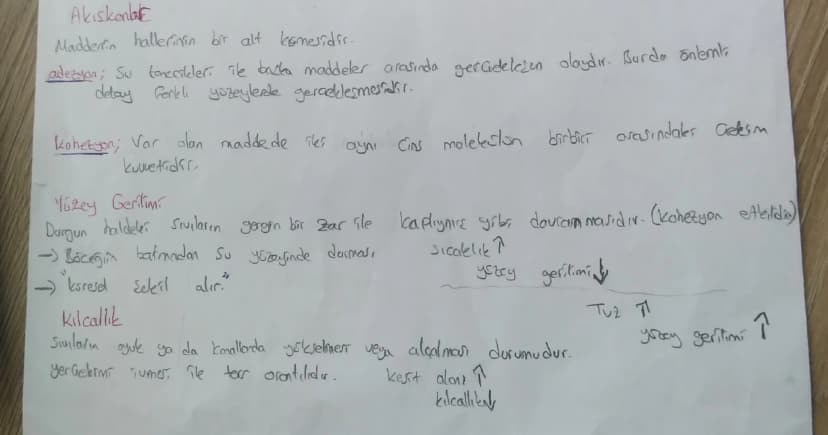 Akışkanlık
Maddenin hallerinin bir alt kümesidir.
adezyon; Su tanecikleri ile başka maddeler arasında gerçekleşen olaydır. Burda önemli
detay farklı yüzeylerde gerçekleşmesidir.
Kohezyon; Var olan maddede iki aynı cins molekülün birbiri arasındaki çekim
kuvvetidir.
Yüzey Gerilimi
Durgun haldeki sıvıların gergin bir zar ile kaplıymış gibi davranmasıdır. (kohezyon etkilidir)
→ Böceğin batmadan su yüzeyinde durması. sıcaklık ↑
yüzey gerilimi ↓
→ "küresel şekil alır."
Tuz ↑
yüzey gerilimi ↑
Kılcallık
Sıvıların oyuk ya da kanallarda yükselmesi veya alçalması durumudur.
yerçekimi ivmesi ile ters orantılıdır. kesit alanı ↑
kılcallık ↓